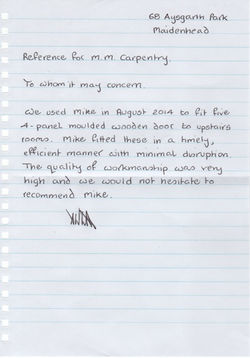 68 Aysgarth Park
Maidenhead
Reference for M.M. Carpentry.
To whom it may concern.
We used Mike in August 2014 to fit five
4-panel moulded wooden door to upstairs
rooms. Mike fitted these in a timely,
efficient manner with minimal disruption.
The quality of workmanship was very
high and we would not hesitate to
recommend Mike.